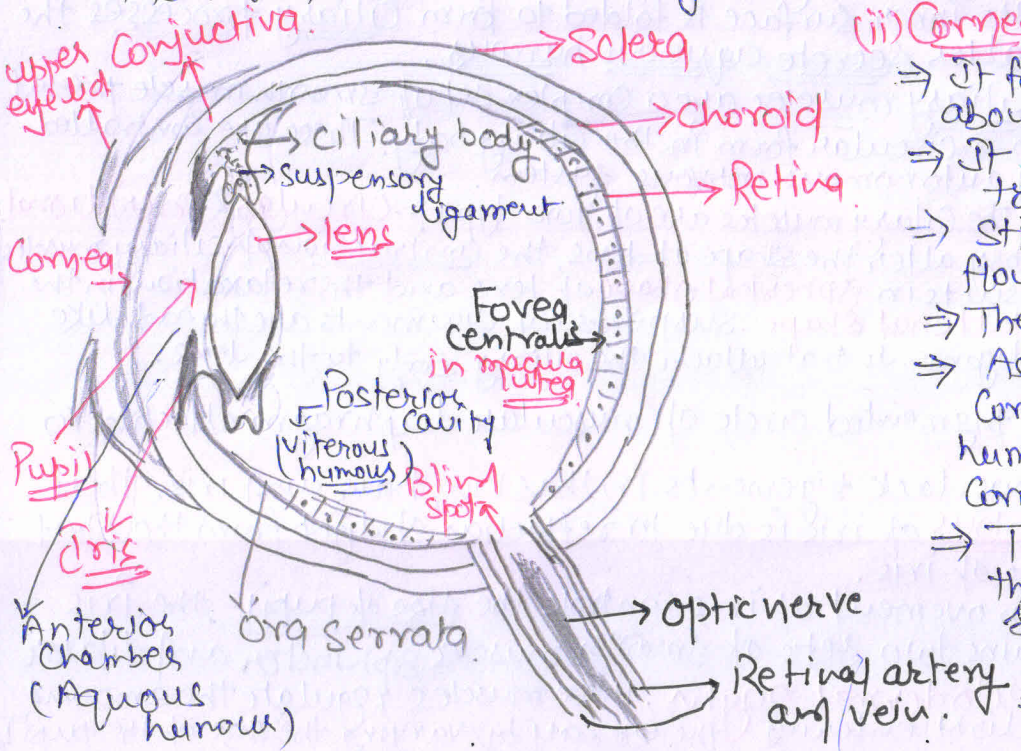 Conjuctiva
upper
eyelid
Sclera
choroid
Ciliary body
suspensory
ligament
Retina
lens
Cornea
Fovea
centralis
in macula
lutea
Posterior
cavity
(viterous
humous)
Blind
spot
Pupil
Iris
Anterior
Chamber
(Aquous
humous)
Ora serrata
optic nerve
Retinal artery
and vein.
(ii) Corne
⇒ It f
abou
⇒ It
⇒ St
flou
⇒ The
⇒ As
Cor
hum
Cor
⇒ T
th